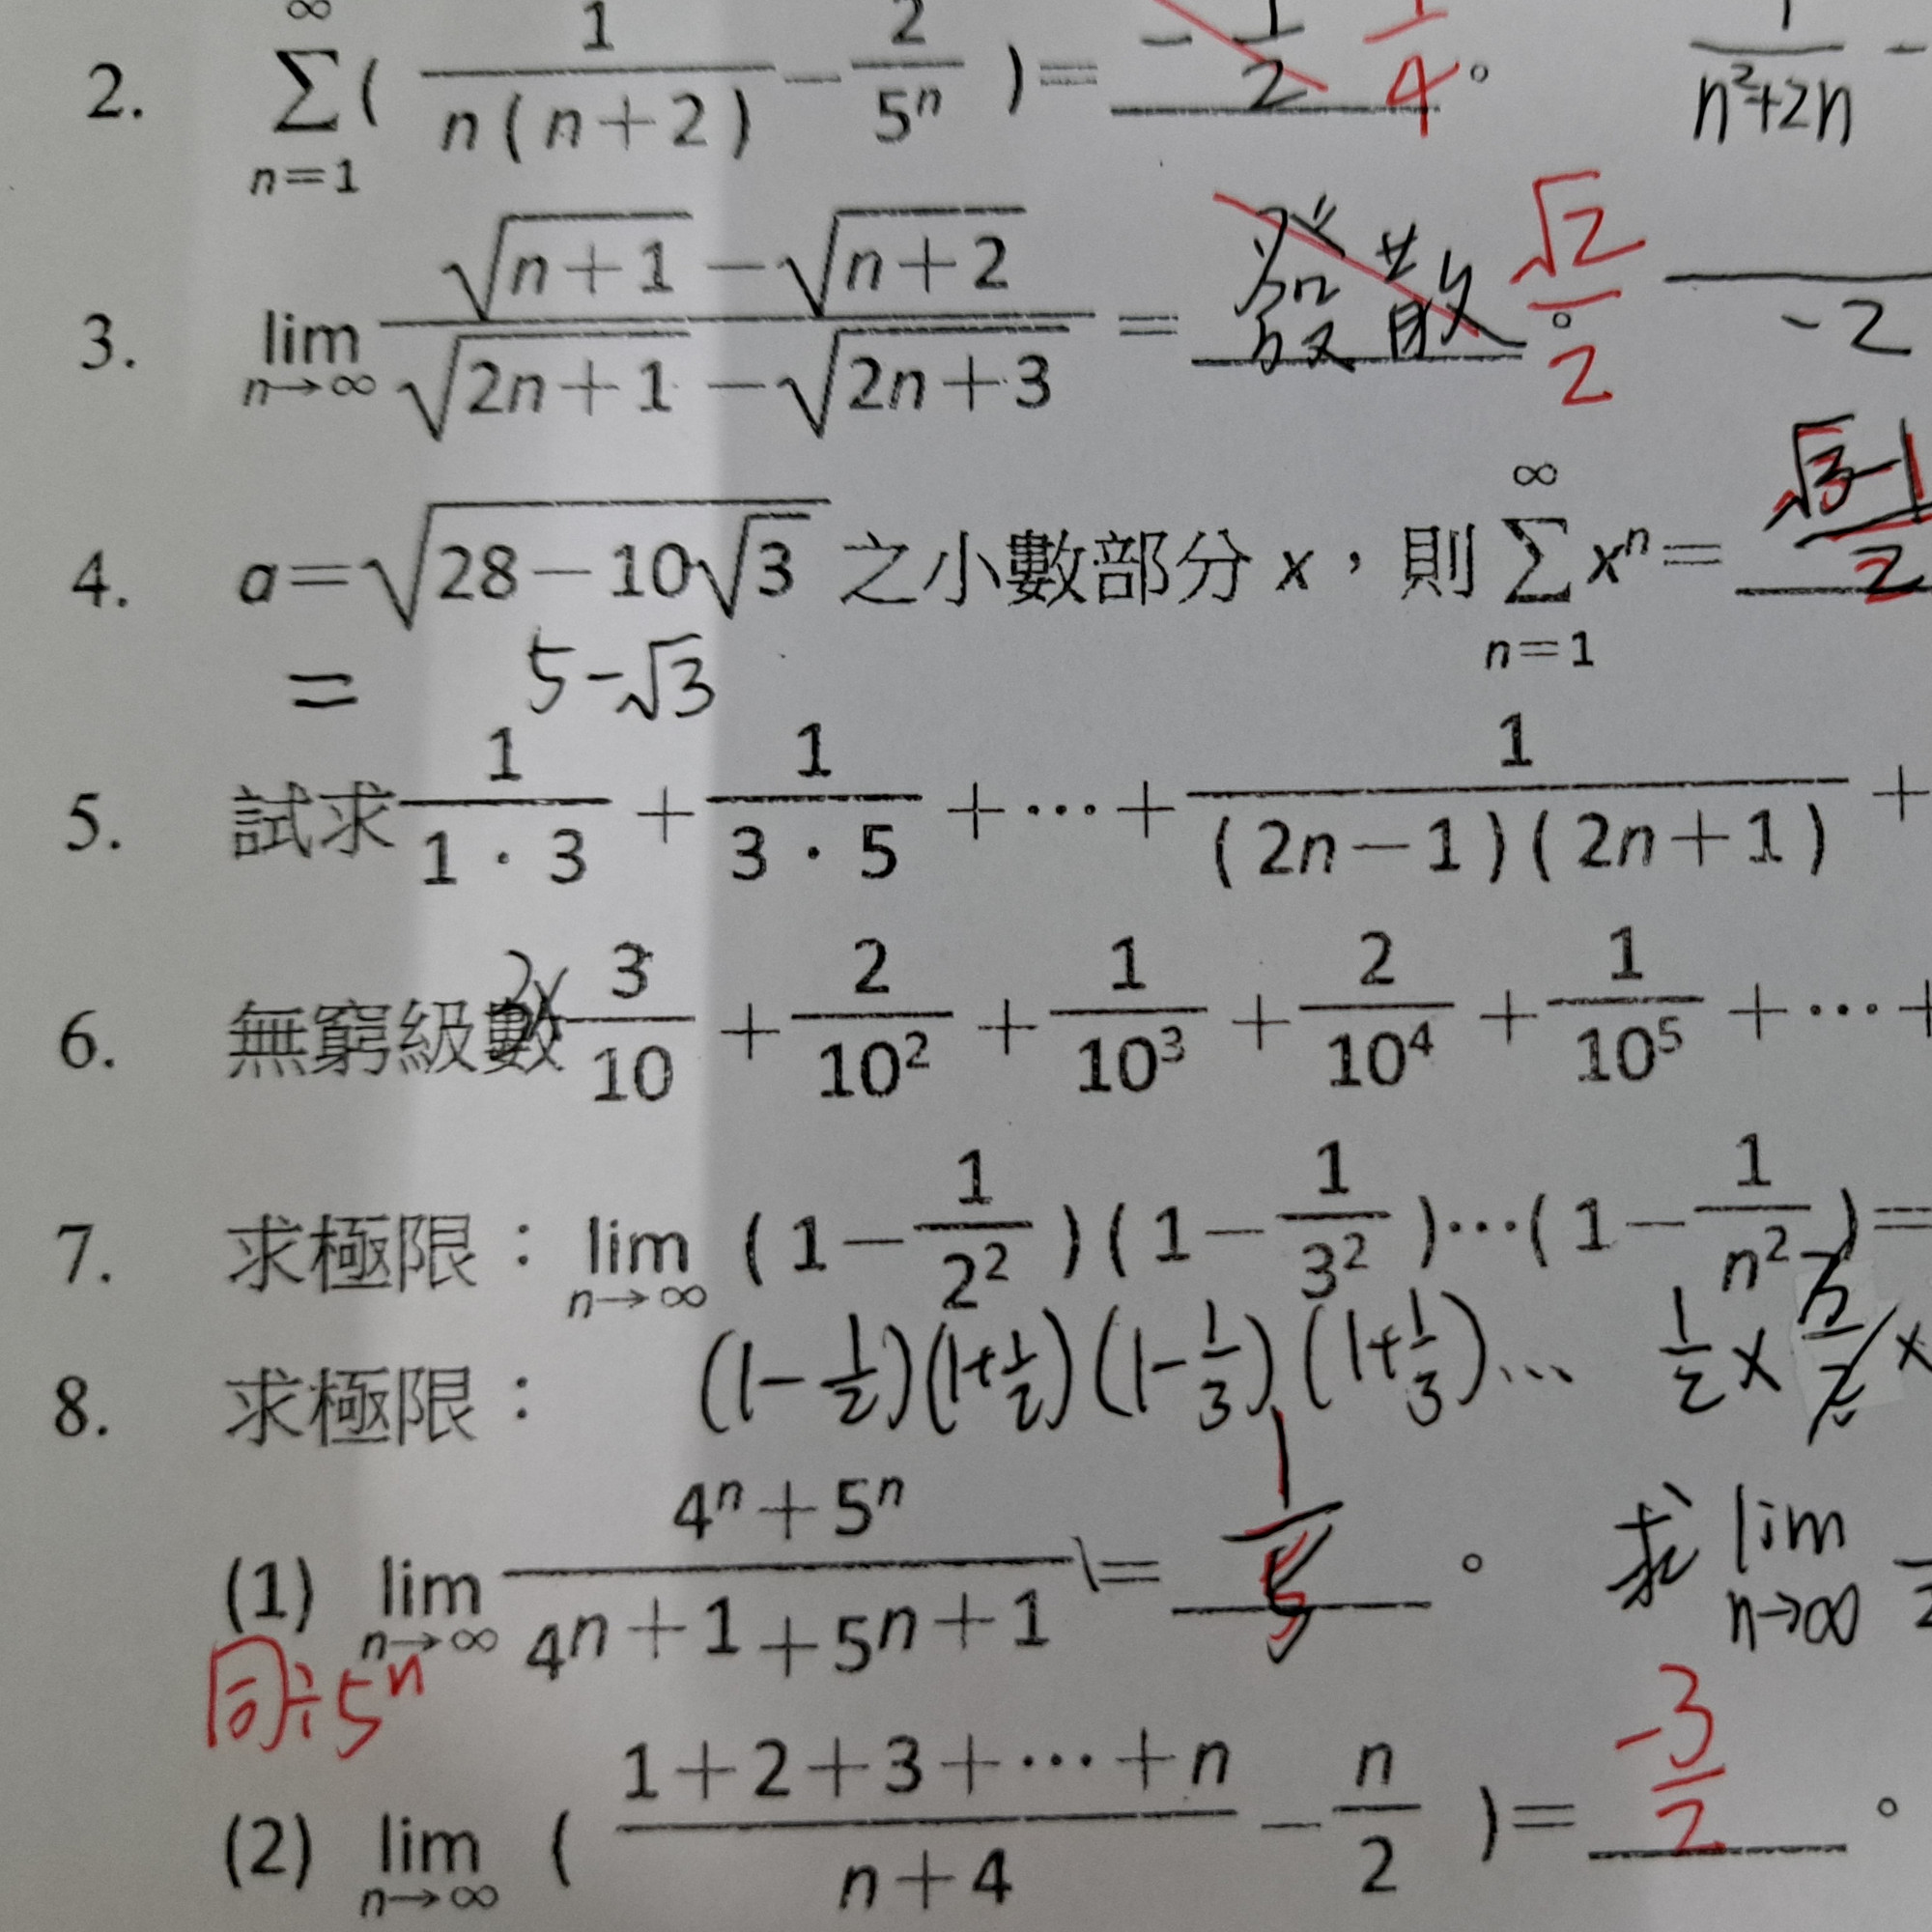 2. ∞ Σ n=1 ( 1/n(n+2) − 2/5ⁿ ) = −1/2 1/4 。 1/n²+2n −
3. lim n→∞ √n+1 − √n+2 / √2n+1 − √2n+3 = 發散 √2/2 。 −2
4. a=√28−10√3 之小數部分 x,則 ∞ Σ n=1 xⁿ= √3−1/2
= 5−√3
5. 試求 1/1·3 + 1/3·5 + ⋯ + 1/(2n−1)(2n+1) +
6. 無窮級數 3/10 + 2/10² + 1/10³ + 2/10⁴ + 1/10⁵ + ⋯ +
7. 求極限:lim n→∞ (1−1/2²)(1−1/3²)⋯(1−1/n²)=
(1−1/2)(1+1/2)(1−1/3)(1+1/3)… 1/2 ×
8. 求極限:
(1) lim n→∞ 4ⁿ+5ⁿ / 4ⁿ⁺¹+5ⁿ⁺¹ = 1/5 。 求 lim n→∞
同÷5ⁿ
(2) lim n→∞ ( 1+2+3+⋯+n / n+4 − n/2 )= −3/2 。